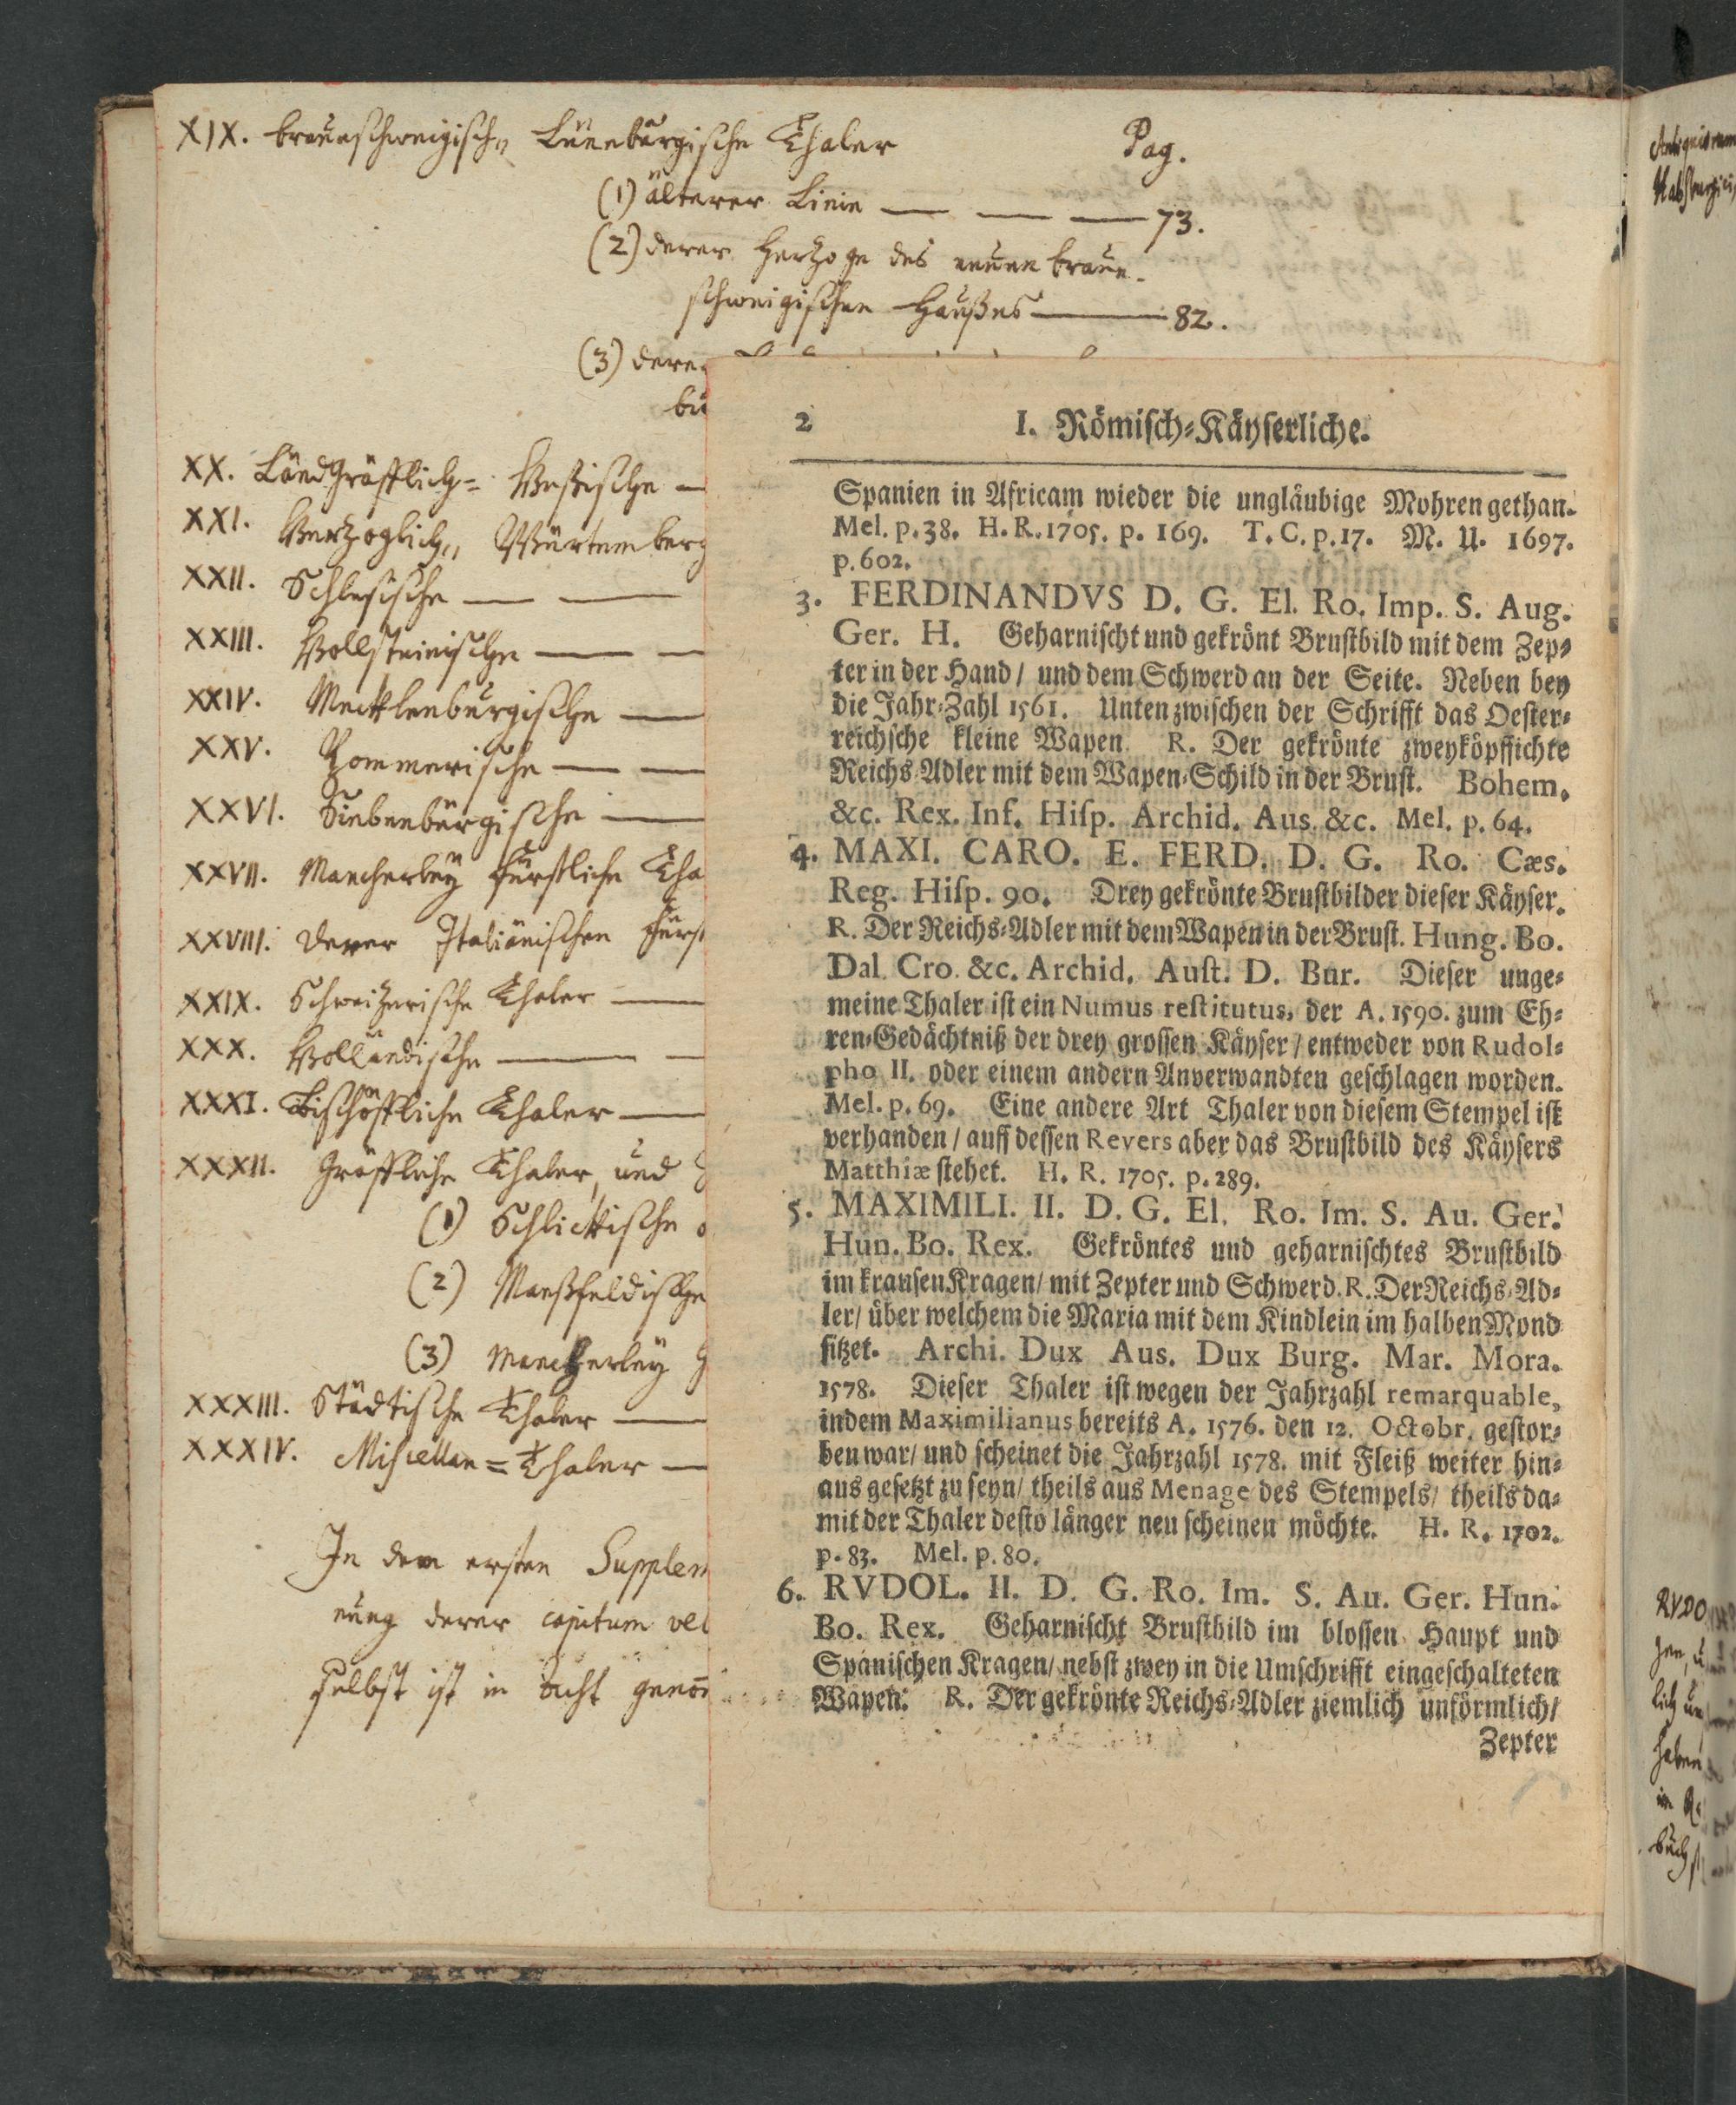 XIX. braunschweigisch„ Lüneburgische Thaler Pag.
(1) älterer Linie — — — 73.
(2) derer Hertzoge des neuen braun-
schweigischen Haußes — 82.
(3) derer
bu
XX. Landgräfflich= Heßische —
XXI. Hertzoglich„ Würtemberg
XXII. Schlesische — —
XXIII. Hollsteinische — —
XXIV. Mecklenburgische —
XXV. Pommerische — —
XXVI. Siebenbürgische —
XXVII. Mancherley fürstliche Tha
XXVIII. derer Italiänischen Fürst
XXIX. Schweitzerische Thaler —
XXX. Holländische — —
XXXI. Bischöffliche Thaler —
XXXII. Gräffliche Thaler, und
(1) Schlickische
(2) Manßfeldische
(3) Mancherley G
XXXIII. Städtische Thaler —
XXXIV. Miscellan=Thaler —
In dem ersten Supplem
nung derer capitum vel
selbst ist in acht genom̄
2 I. Römisch-Käyserliche.
Spanien in Africam wieder die ungläubige Mohren gethan.
Mel. p. 38. H. R. 1705. p. 169. T. C. p. 17. M. U. 1697.
p. 602.
3. FERDINANDVS D. G. El. Ro. Imp. S. Aug.
Ger. H. Geharnischt und gekrönt Brustbild mit dem Zep-
ter in der Hand/ und dem Schwerd an der Seite. Neben bey
die Jahr-Zahl 1561. Unten zwischen der Schrifft das Oester-
reichsche kleine Wapen. R. Der gekrönte zweyköpffichte
Reichs-Adler mit dem Wapen-Schild in der Brust. Bohem.
&c. Rex. Inf. Hisp. Archid. Aus. &c. Mel. p. 64.
4. MAXI. CARO. E. FERD. D. G. Ro. Cæs.
Reg. Hisp. 90. Drey gekrönte Brustbilder dieser Käyser.
R. Der Reichs-Adler mit dem Wapen in der Brust. Hung. Bo.
Dal. Cro. &c. Archid. Aust. D. Bur. Dieser unge-
meine Thaler ist ein Numus restitutus, der A. 1590. zum Eh-
ren-Gedächtniß der drey grossen Käyser/ entweder von Rudol-
pho II. oder einem andern Anverwandten geschlagen worden.
Mel. p. 69. Eine andere Art Thaler von diesem Stempel ist
verhanden/ auff dessen Revers aber das Brustbild des Käysers
Matthiæ stehet. H. R. 1705. p. 289.
5. MAXIMILI. II. D. G. El. Ro. Im. S. Au. Ger.
Hun. Bo. Rex. Gekröntes und geharnischtes Brustbild
im krausen Kragen/ mit Zepter und Schwerd. R. Der Reichs-Ad-
ler/ über welchem die Maria mit dem Kindlein im halben Mond
sitzet. Archi. Dux Aus. Dux Burg. Mar. Mora.
1578. Dieser Thaler ist wegen der Jahrzahl remarquable,
indem Maximilianus bereits A. 1576. den 12. Octobr. gestor-
ben war/ und scheinet die Jahrzahl 1578. mit Fleiß weiter hin-
aus gesetzt zu seyn/ theils aus Menage des Stempels/ theils da-
mit der Thaler desto länger neu scheinen möchte. H. R. 1702.
p. 83. Mel. p. 80.
6. RVDOL. II. D. G. Ro. Im. S. Au. Ger. Hun.
Bo. Rex. Geharnischt Brustbild im blossen Haupt und
Spanischen Kragen/ nebst zwey in die Umschrifft eingeschalteten
Wapen. R. Der gekrönte Reichs-Adler ziemlich unförmlich/
Zepter
RVDO
lich
haben